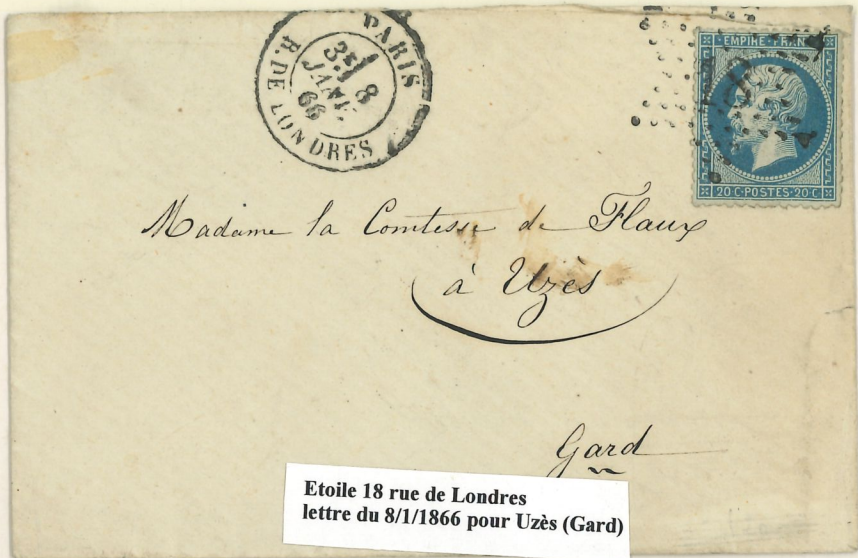 PARIS
3E
8
JANV.
66
R. DE LONDRES
EMPIRE FRAN
20 C-POSTES-20 C
Madame la Comtesse de Flaux
à Uzès
Gard
Etoile 18 rue de Londres
lettre du 8/1/1866 pour Uzès (Gard)